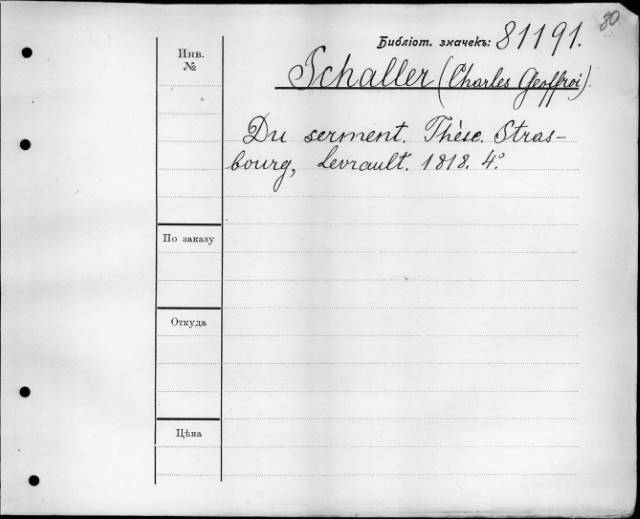 80
Библіот. значекъ: 81191.
Инв.
№
Schaller (Charles Geoffroi).
Du serment. Thèse. Stras-
bourg, Levrault. 1818. 4°
По заказу
Откуда
Цѣна